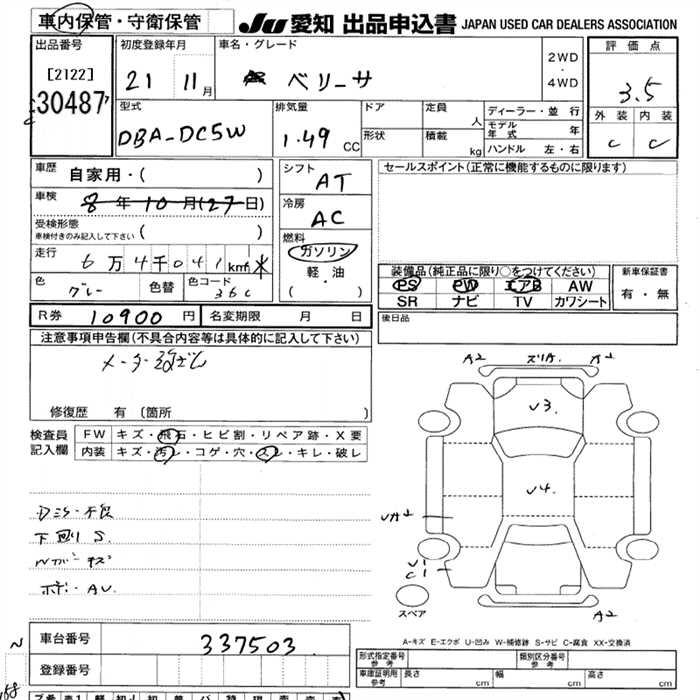 車内保管・守衛保管
JU 愛知 出品申込書 JAPAN USED CAR DEALERS ASSOCIATION
出品番号
[2122]
30487
初度登録年月
21 11月
車名・グレード
ベリーサ
2WD
・
4WD
評価点
3.5
外装 内装
C C
型式
DBA-DC5W
排気量
1.49 CC
ドア
形状
定員 人
積載 kg
ディーラー・並行
モデル年式 年
ハンドル 左・右
車歴
自家用・( )
車検
8年10月(27日)
受検形態
車検付きのみ記入して下さい ( )
走行
6万4千041km *
色
グレー
色替
色コード
36C
シフト
AT
冷房
AC
燃料
ガソリン
軽・油
( )
セールスポイント(正常に機能するものに限ります)
装備品(純正品に限り○をつけてください)
PS PW エアB AW
SR ナビ TV カワシート
新車保証書
有・無
後日品
R券 10900円 名変期限 月 日
注意事項申告欄(不具合内容等は具体的に記入して下さい)
修復歴 有 (箇所 )
検査員
記入欄
FW キズ・飛石・ヒビ割・リペア跡・X要
内装 キズ・汚レ・コゲ・穴・スレ・キレ・破レ
下回りS
A2 スリA. A2
V3.
V4.
VA2
V1
C1
A2
A2
スペア
A-キズ E-エクボ U-凹み W-補修跡 S-サビ C-腐食 XX-交換済
車台番号 337503
登録番号
形式指定番号 参考
類別区分番号 参考
車庫証明用 参考 長さ cm 幅 cm 高さ cm
N
168